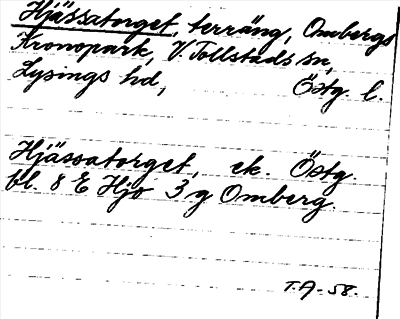 Hjässatorget, terräng, Ombergs
Kronopark, V. Tollstads sn,
Lysings hd, Östg. l.
Hjässatorget, ek. Östg.
bl. 8 E Hjo 3 g Omberg.
T.A. -58.